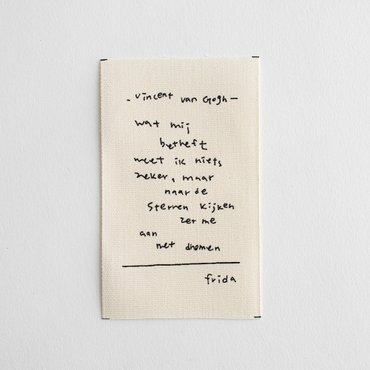 - vincent van Gogh -
wat mij
betreft
weet ik niets
zeker, maar
naar de
sterren kijken
zet me
aan
het dromen
frida